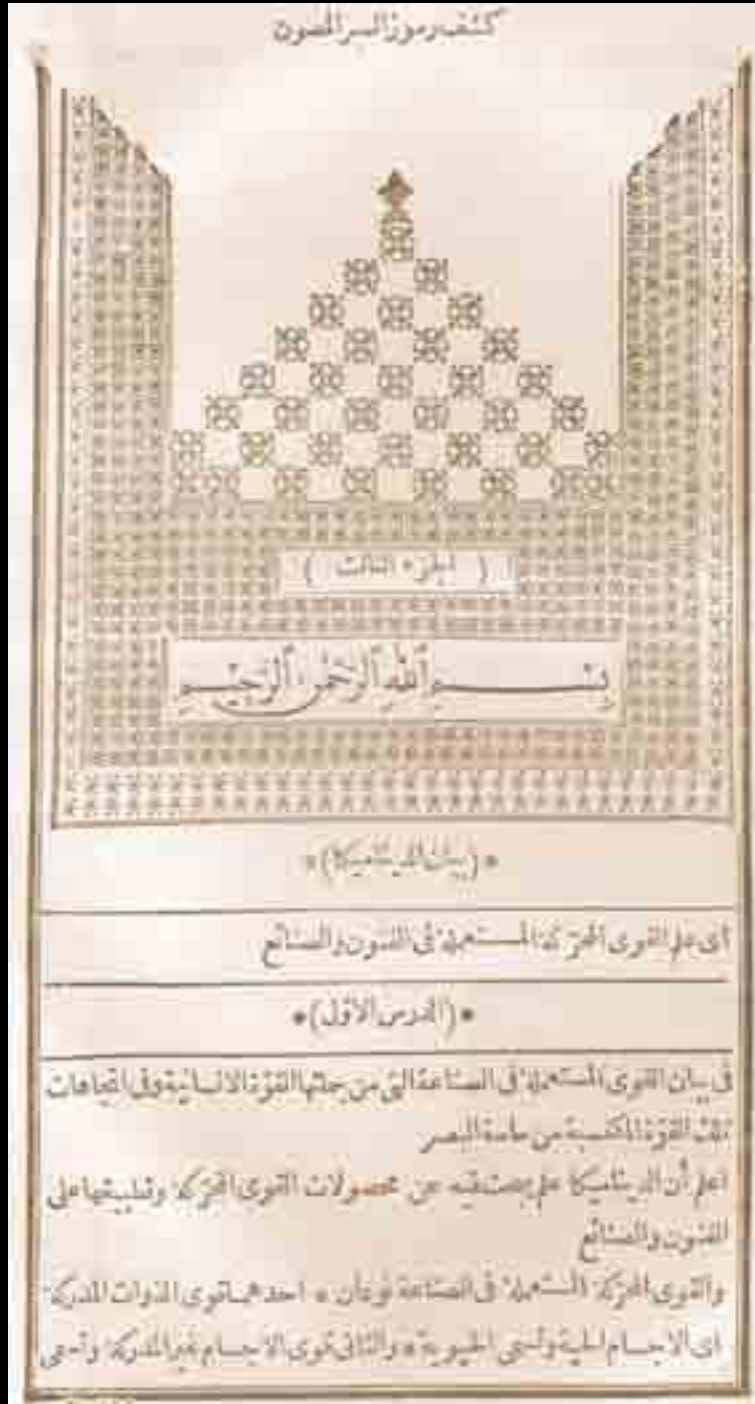 كشف رموز السر المصون
( الجزء الثالث )
بسم الله الرحمن الرحيم
*(بيان الديناميكا)*
اى علم القوى المحركة المستعملة فى الفنون والصنائع
*(الدرس الاول)*
فى بيان القوى المستعملة فى الصناعة التى من جملتها القوة الانسانية وفى اتجاهات
تلك القوة المكتسبة من حاسة البصر
اعلم أن الديناميكا علم يبحث فيه عن محصولات القوى المحركة وتطبيقها على
الفنون والصنائع
والقوى المحركة المستعملة فى الصناعة نوعان * احدهما قوى الذوات المدركة
اى الاجسام الحية وتسمى الحيوية * والثانى قوى الاجسام غير المدركة وتسمى